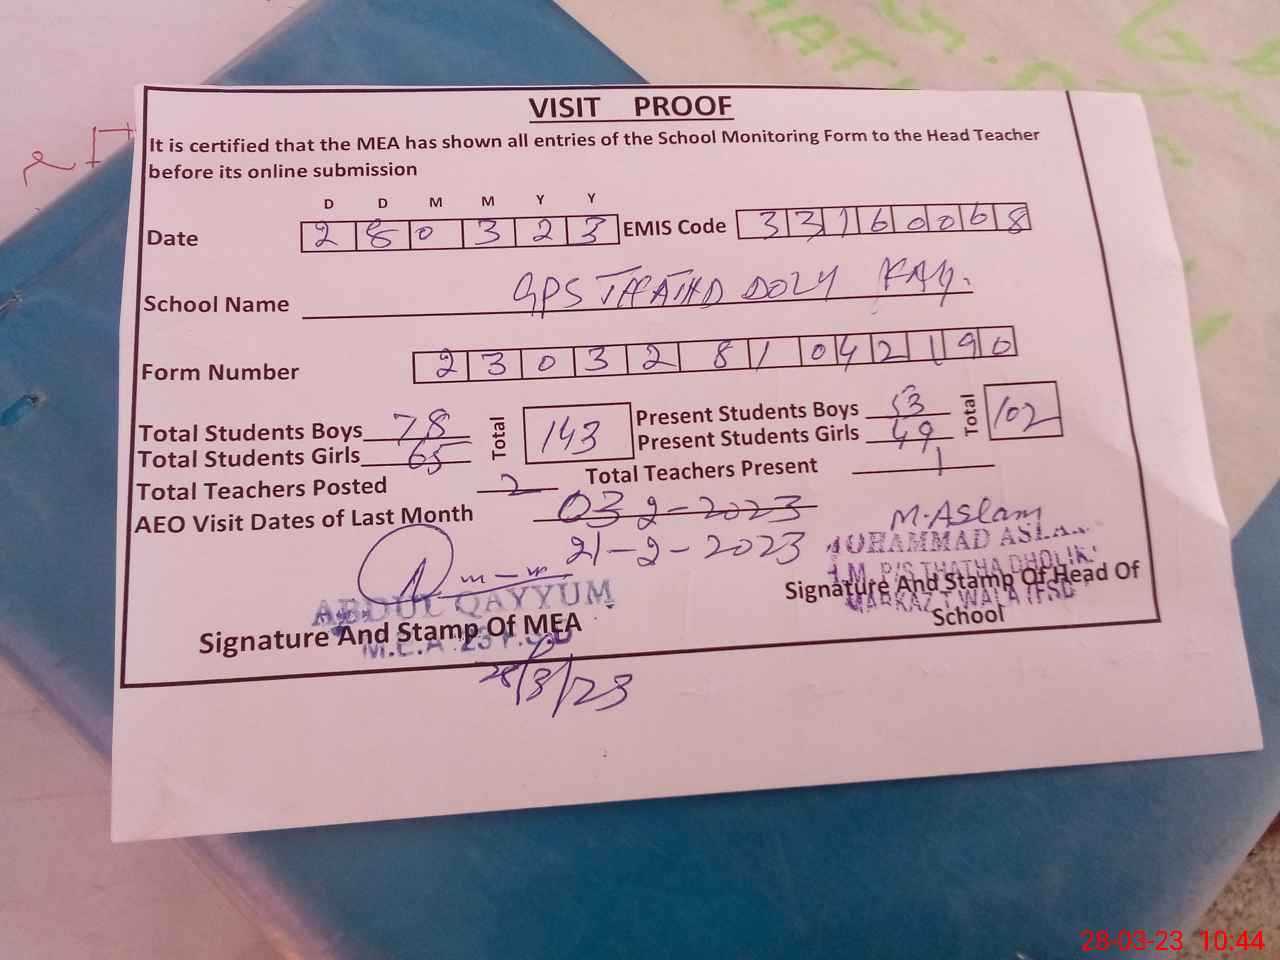 VISIT PROOF
It is certified that the MEA has shown all entries of the School Monitoring Form to the Head Teacher
before its online submission
D D M M Y Y
Date 2 8 0 3 2 3 EMIS Code 3 3 1 6 0 0 6 8
School Name GPS THATHA DOLY KAY.
Form Number 2 3 0 3 2 8 1 0 4 2 1 9 0
Total Students Boys 78 Total 143 Present Students Boys 53 Total 102
Total Students Girls 65 Present Students Girls 49
Total Teachers Posted 2 Total Teachers Present 1
AEO Visit Dates of Last Month 03-2-2023
21-2-2023
M. Aslam
MOHAMMAD ASLAM
H.M. P/S THATHA DHOLIK
MARKAZ T WALA (FSD
Signature And Stamp Of Head Of
School
ABDUL QAYYUM
Signature And Stamp Of MEA
M.E.A 23
28/3/23
28-03-23 10:44